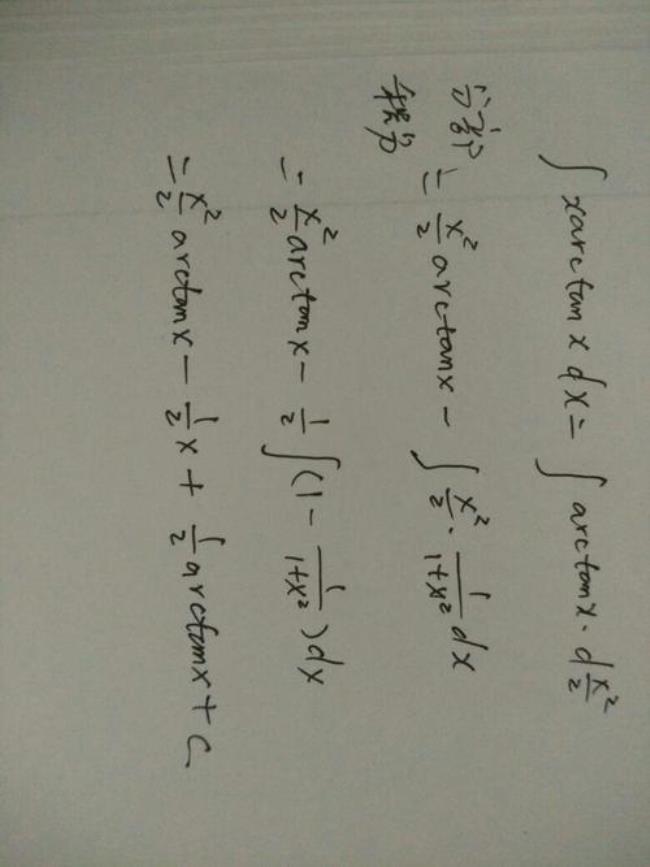 ∫ x arctan x dx = ∫ arctan x · d x²/2
分部积分 = x²/2 arctan x − ∫ x²/2 · 1/(1+x²) dx
= x²/2 arctan x − 1/2 ∫ (1 − 1/(1+x²)) dx
= x²/2 arctan x − 1/2 x + 1/2 arctan x + C